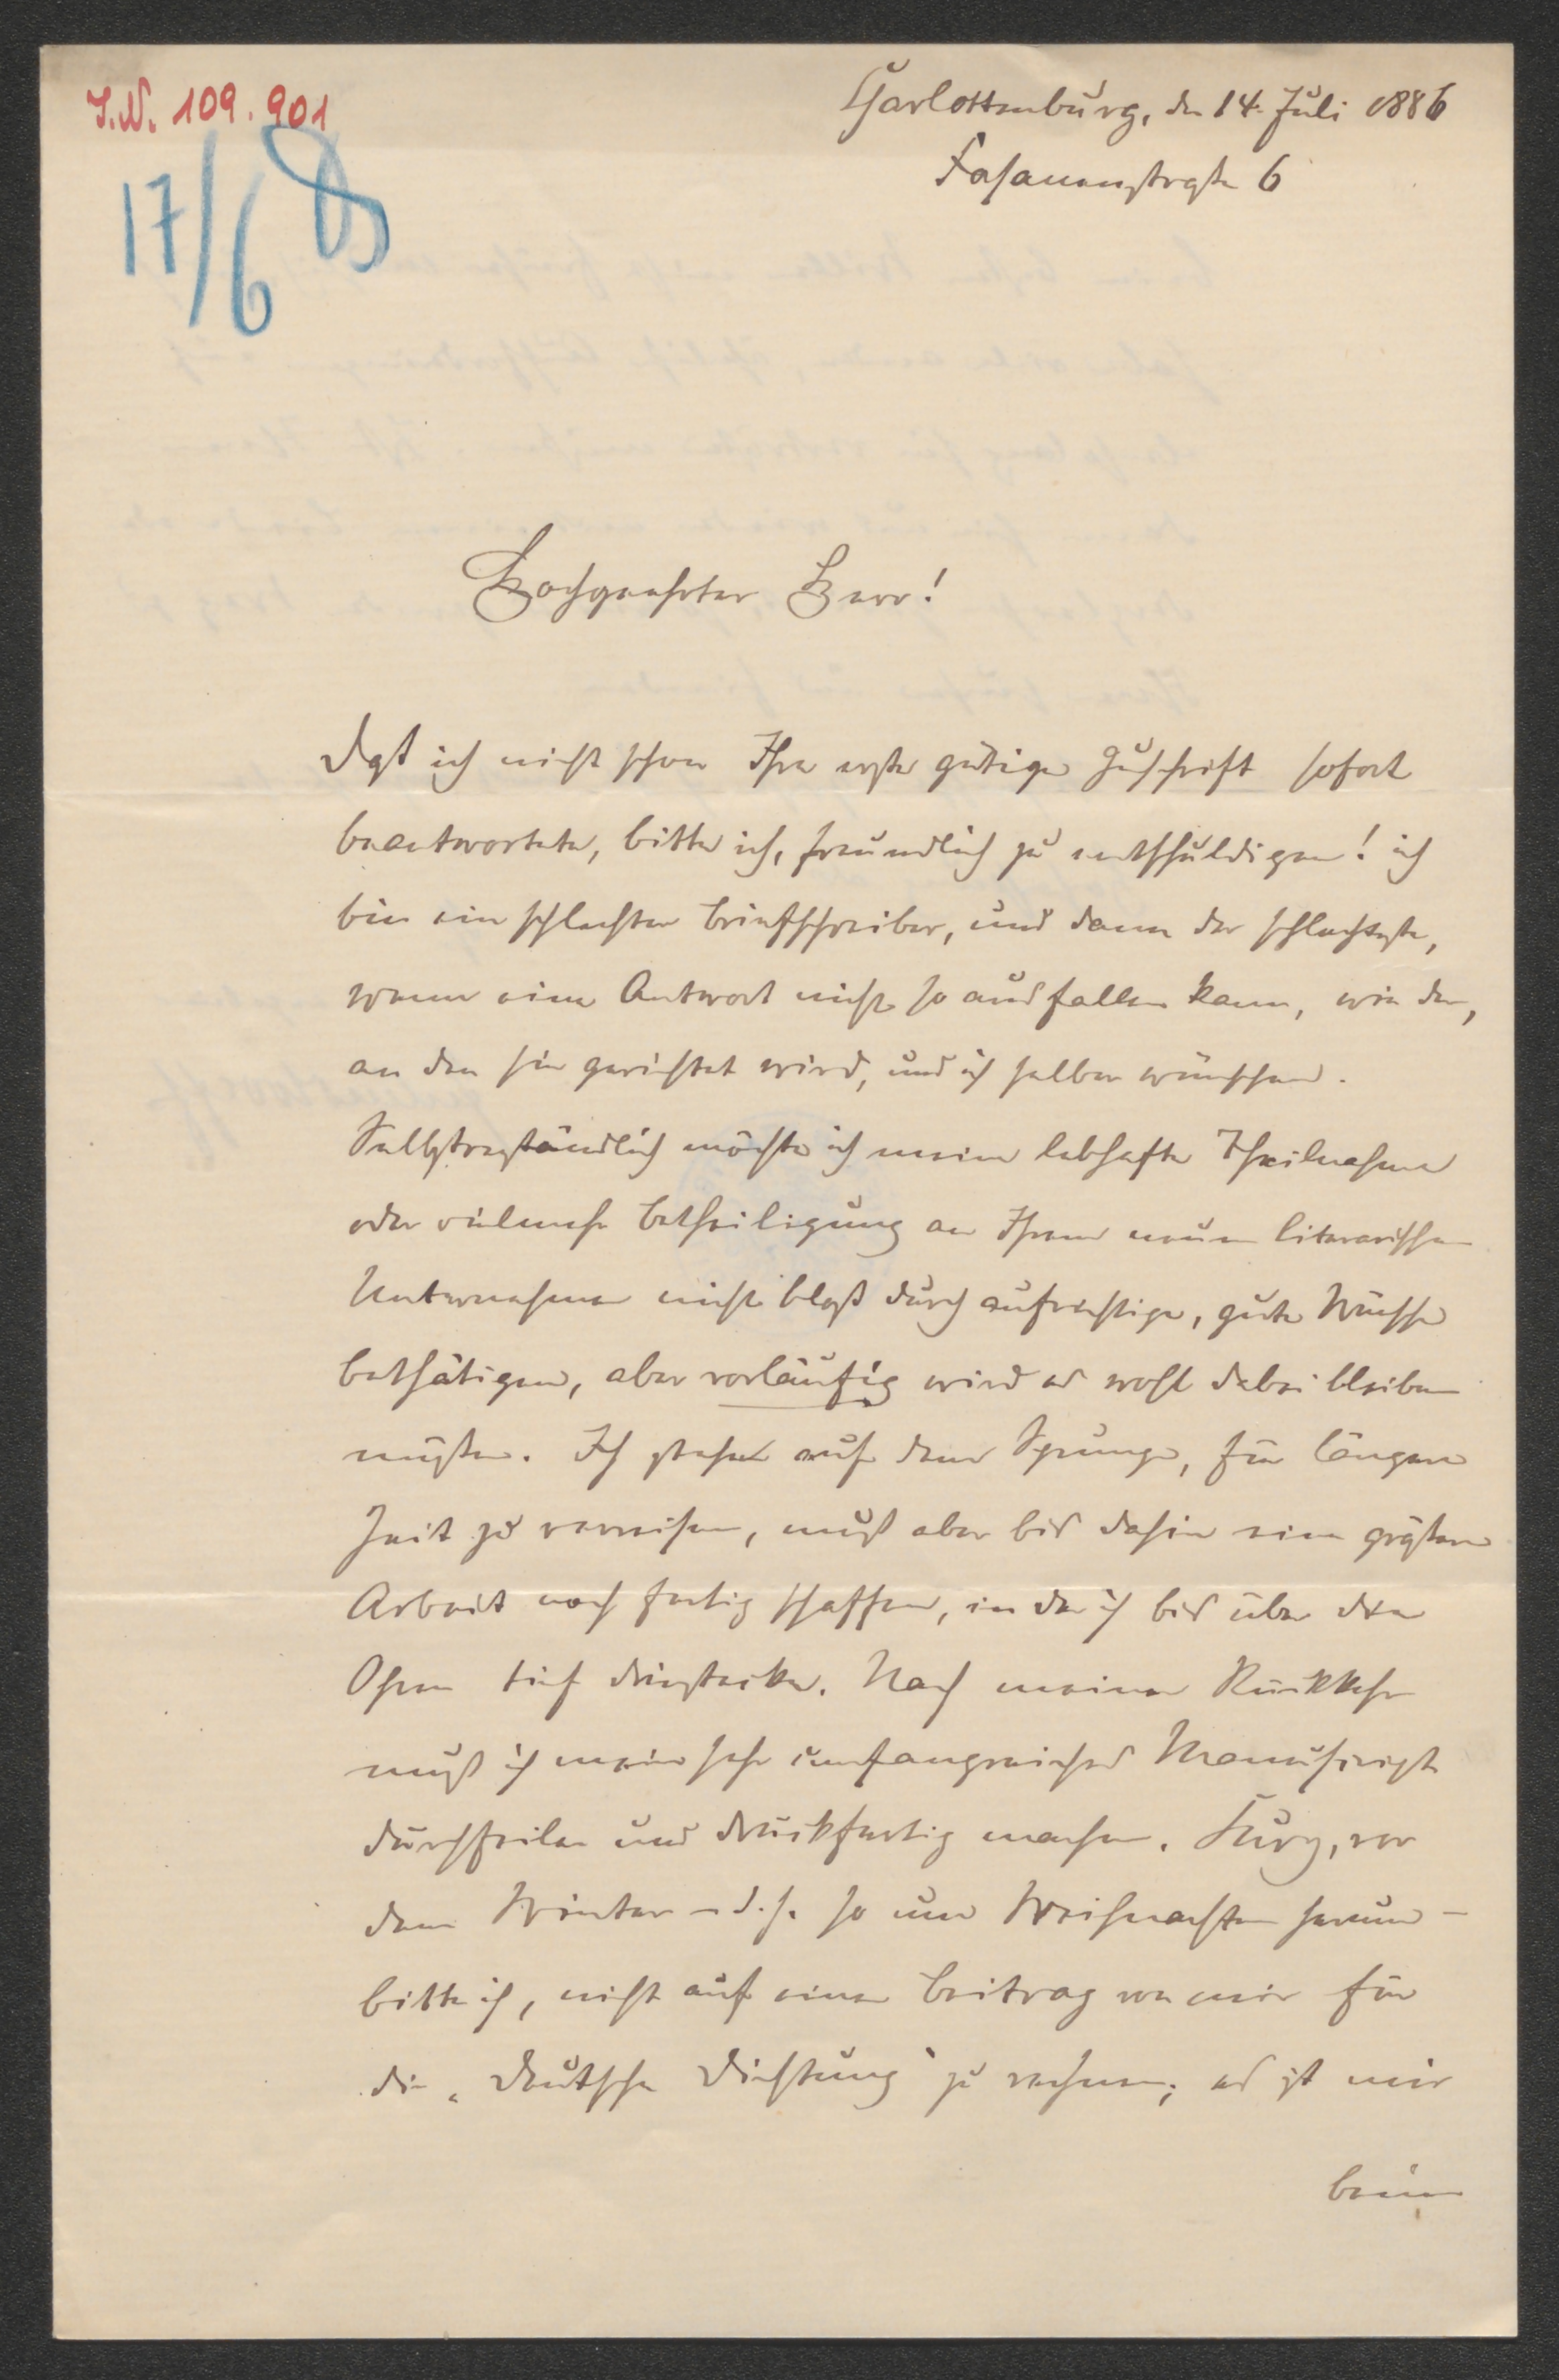 I.N. 109.901
17/6 85
Charlottenburg, den 14. Juli 1886
Fasanenstraße 6
Hochgeehrter Herr!
Daß ich nicht schon Ihre erste gütige Zuschrift sofort
beantwortete, bitte ich, freundlich zu entschuldigen! ich
bin ein schlechter Briefschreiber, und dann der schlechteste,
wenn eine Antwort nicht so ausfallen kann, wie der,
an den sie gerichtet wird, und ich selber wünschen.
Selbstverständlich möchte ich meine lebhafte Theilnahme
oder vielmehr Betheiligung an Ihrem neuen literarischen
Unternehmen nicht bloß durch aufrichtige, gute Wünsche
bethätigen, aber vorläufig wird es wohl dabei bleiben
müssen. Ich stehe auf dem Sprunge, für längere
Zeit zu verreisen, muß aber bis dahin eine größere
Arbeit noch fertig schaffen, in der ich bis über die
Ohren tief drinstecke. Nach meiner Rückkehr
muß ich mein sehr umfangreiches Manuscript
durchfeilen und druckfertig machen. Kurz, vor
dem Winter – d.h. so um Weihnachten herum –
bitte ich, nicht auf einen Beitrag von mir für
die „Deutsche Dichtung“ zu rechnen; es ist mir
beim